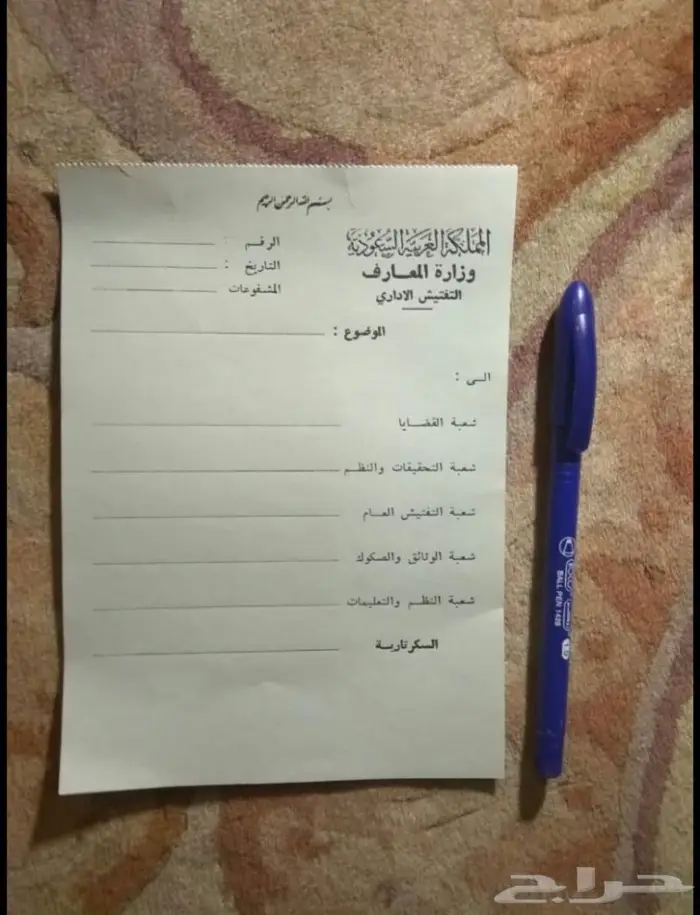 بسم الله الرحمن الرحيم
المملكة العربية السعودية
وزارة المعارف
التفتيش الاداري
الرقم :
التاريخ :
المشفوعات
الموضوع :
الى :
شعبة القضايا
شعبة التحقيقات والنظم
شعبة التفتيش العام
شعبة الوثائق والصكوك
شعبة النظم والتعليمات
السكرتارية
BALL PEN 1428
حراج